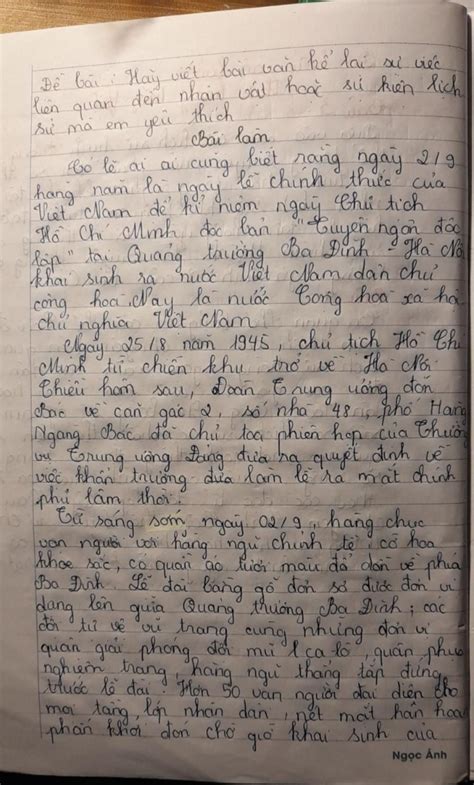 Đề bài : Hãy viết bài văn kể lại sự việc
liên quan đến nhân vật hoặc sự kiện lịch
sử mà em yêu thích
Bài làm
Có lẽ ai ai cũng biết rằng ngày 2/9
hàng năm là ngày lễ chính thức của
Việt Nam để kỉ niệm ngày Chủ tịch
Hồ Chí Minh đọc bản "Tuyên ngôn độc
lập" tại Quảng trường Ba Đình - Hà Nội
khai sinh ra nước Việt Nam dân chủ
cộng hoà. Nay là nước Cộng hoà xã hội
chủ nghĩa Việt Nam.
Ngày 25/8 năm 1945, chủ tịch Hồ Chí
Minh từ chiến khu trở về Hà Nội
Chiều hôm sau, Đoàn Trung ương đón
Bác về căn gác 2, số nhà 48, phố Hàng
Ngang. Bác đã chủ toạ phiên họp của Thường
vụ Trung ương Đảng đưa ra quyết định về
việc khẩn trương đưa làm lễ ra mắt chính
phủ lâm thời.
Từ sáng sớm ngày 02/9, hàng chục
vạn người với hàng ngũ chỉnh tề, cờ hoa
khoe sắc, có quần áo tươi màu đổ dồn về phía
Ba Đình. Lễ đài bằng gỗ đơn sơ được đơn vị
dang lên giữa Quảng trường Ba Đình ; các
đội tự vệ vũ trang cùng những đơn vị
quân giải phóng đội mũ ca lô, quân phục
nghiêm trang, hàng ngũ thẳng tắp đứng
trước lễ đài. Hơn 50 vạn người đại diện cho
mọi tầng lớp nhân dân, nét mặt hân hoan
phấn khởi đón chờ giờ khai sinh của
Ngọc Ánh